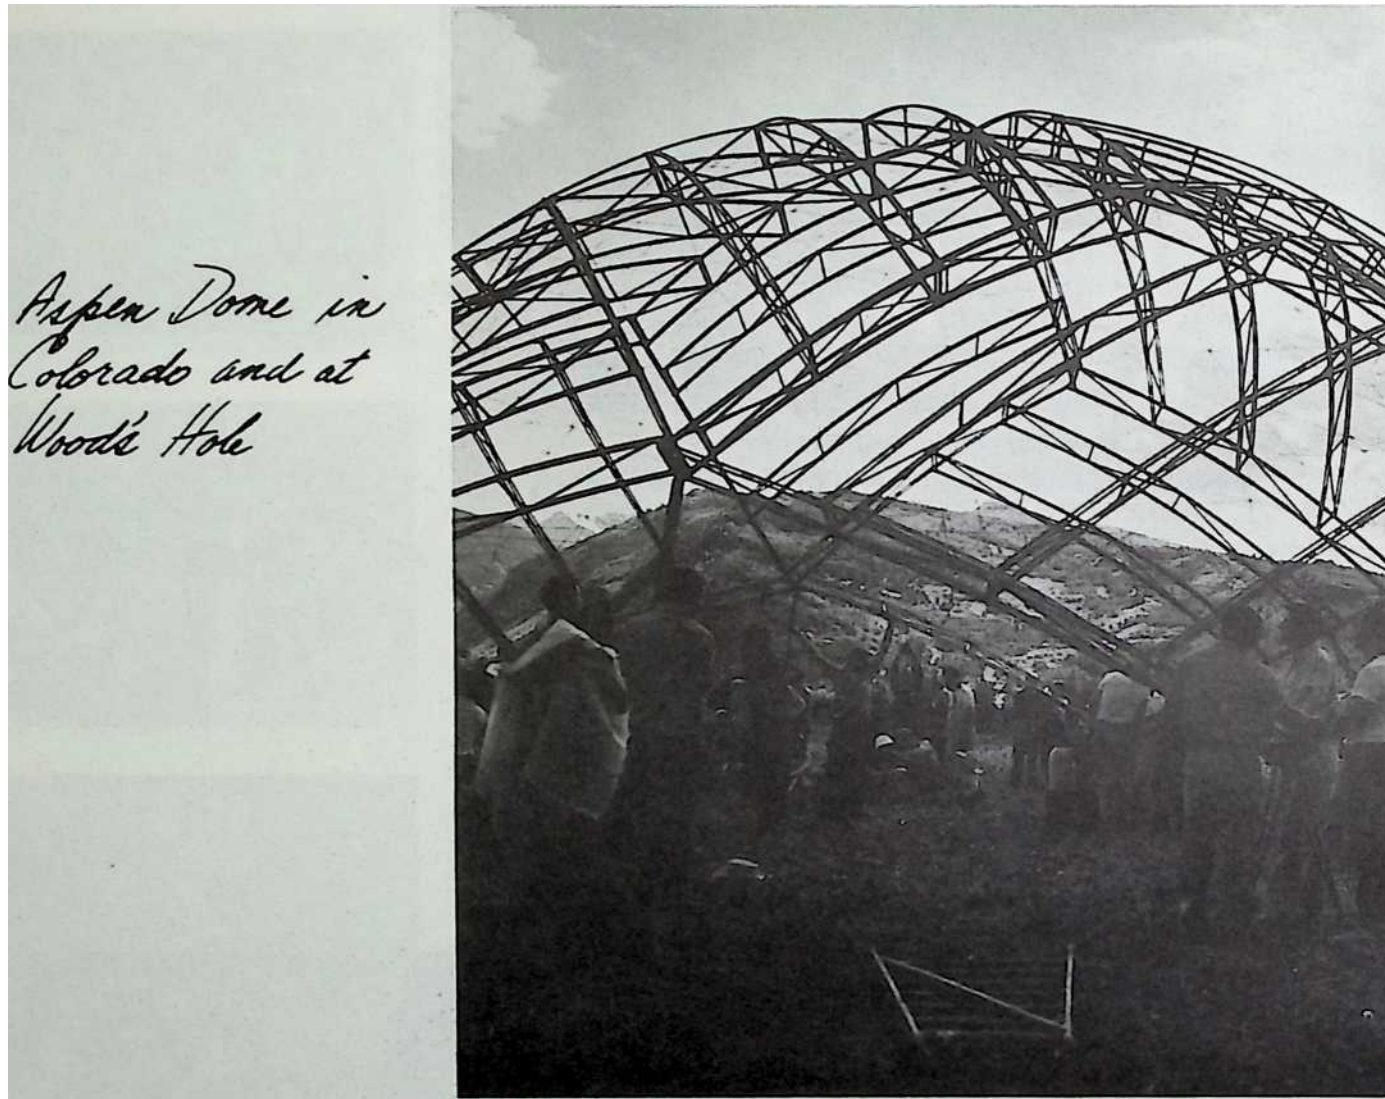 Aspen Dome in
Colorado and at
Wood's Hole